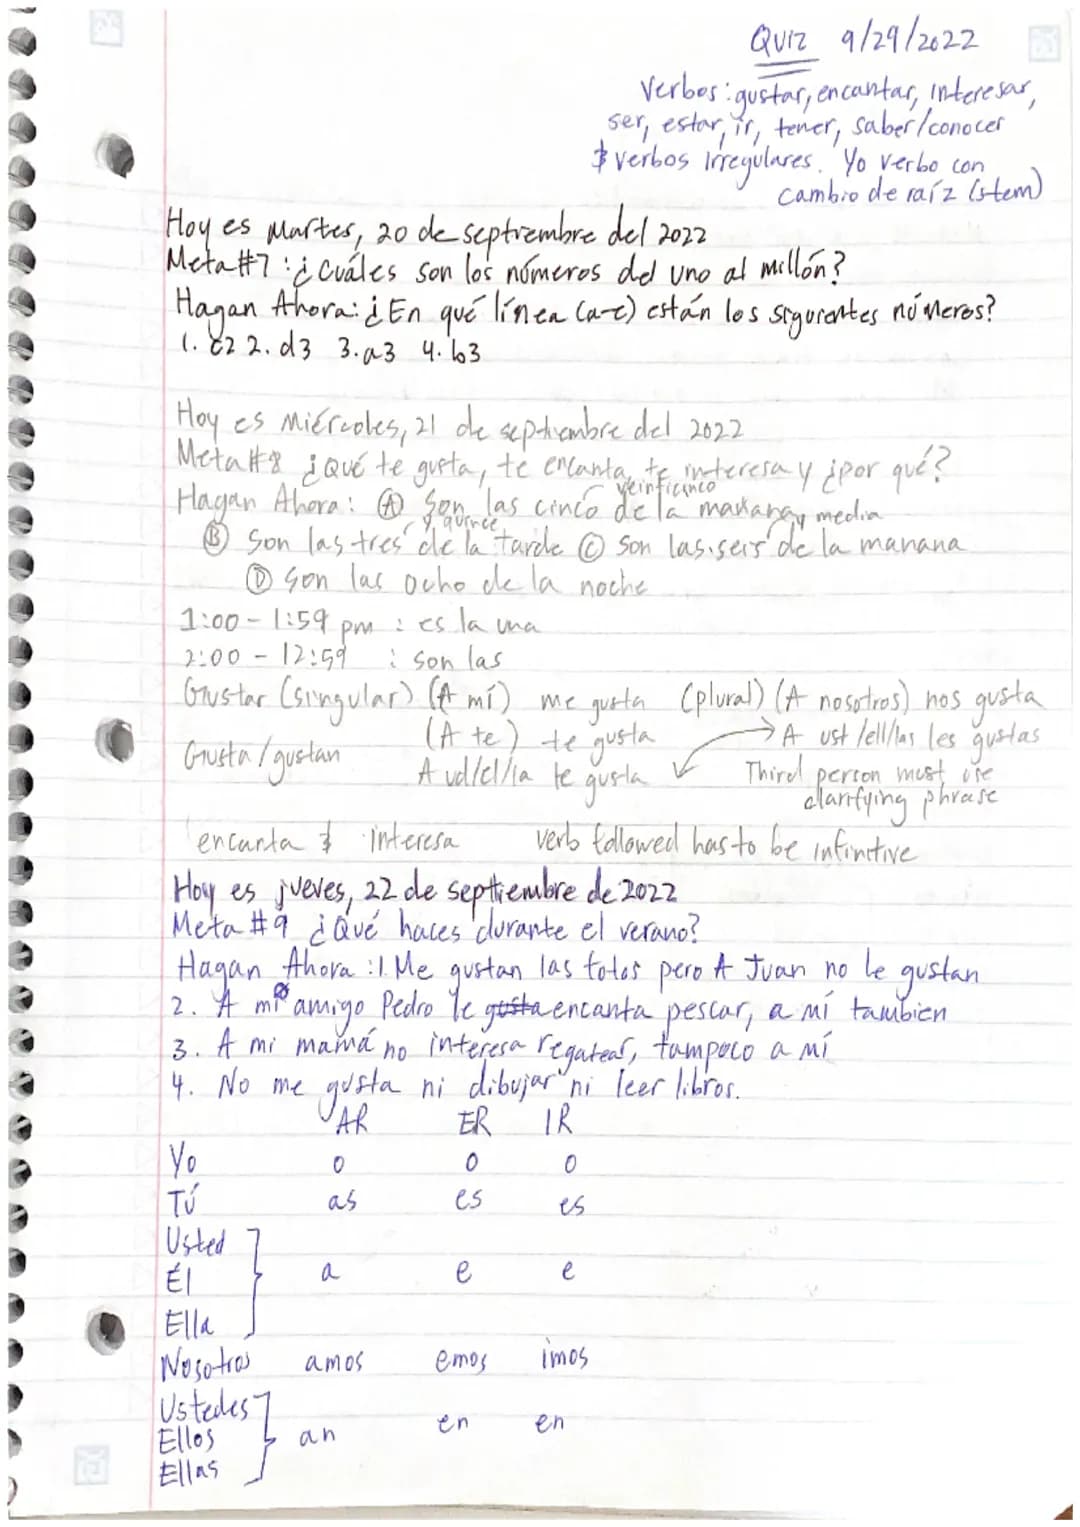 Quiz 9/29/2022
Verbos: gustar, encantar, interesar,
ser, estar, ir, tener, saber/conocer
& verbos irregulares. Yo verbo con
cambio de raíz (stem)
Hoy es Martes, 20 de septiembre del 2022
Meta #7: ¿Cuáles son los números del uno al millón?
Hagan Ahora: ¿En qué línea (a-e) están los siguientes números?
1. c2 2. d3 3. a3 4. b3
Hoy es Miércoles, 21 de septiembre del 2022
Meta #8 ¿Qué te gusta, te encanta, te interesa y ¿por qué?
veinticinco
Hagan Ahora: Ⓐ Son las cinco de la manana y media
y quince
Ⓑ Son las tres de la tarde Ⓒ Son las seis de la manana
Ⓓ Son las ocho de la noche
1:00 - 1:59 pm : es la una
2:00 - 12:59 : son las
Gustar (singular) (A mí) me gusta (plural) (A nosotros) nos gusta
(A te) te gusta A ust/ell/las les gustas
Gusta/gustan A ud/el/la le gusta Third person must use
clarifying phrase
encanta & interesa verb followed has to be infinitive
Hoy es jueves, 22 de septiembre de 2022
Meta #9 ¿Qué haces durante el verano?
Hagan Ahora: 1. Me gustan las fotos pero A Juan no le gustan
2. A mi amigo Pedro le gusta encanta pescar, a mí tambien
3. A mi mamá no interesa regatear, tampoco a mí
4. No me gusta ni dibujar ni leer libros.
AR ER IR
Yo o o o
Tú as es es
Usted
Él a e e
Ella
Nosotros amos emos imos
Ustedes
Ellos an en en
Ellas